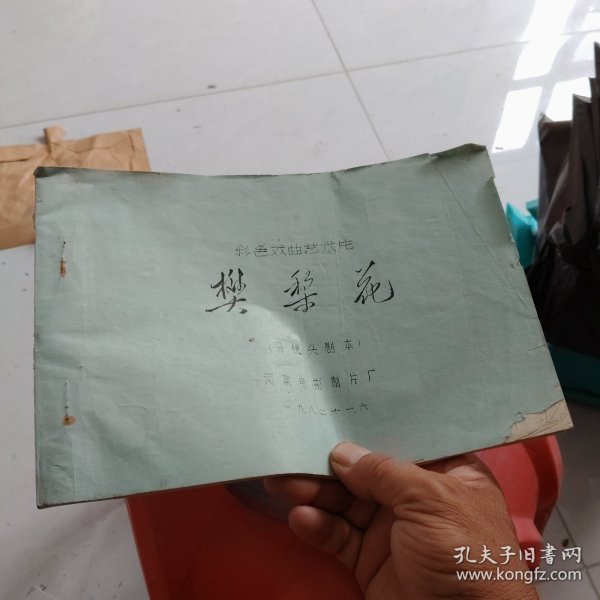 彩色戏曲艺术片
樊梨花
(分镜头剧本)
河南电影制片厂
一九八二·十一·六
孔夫子旧书网
www.kongfz.com